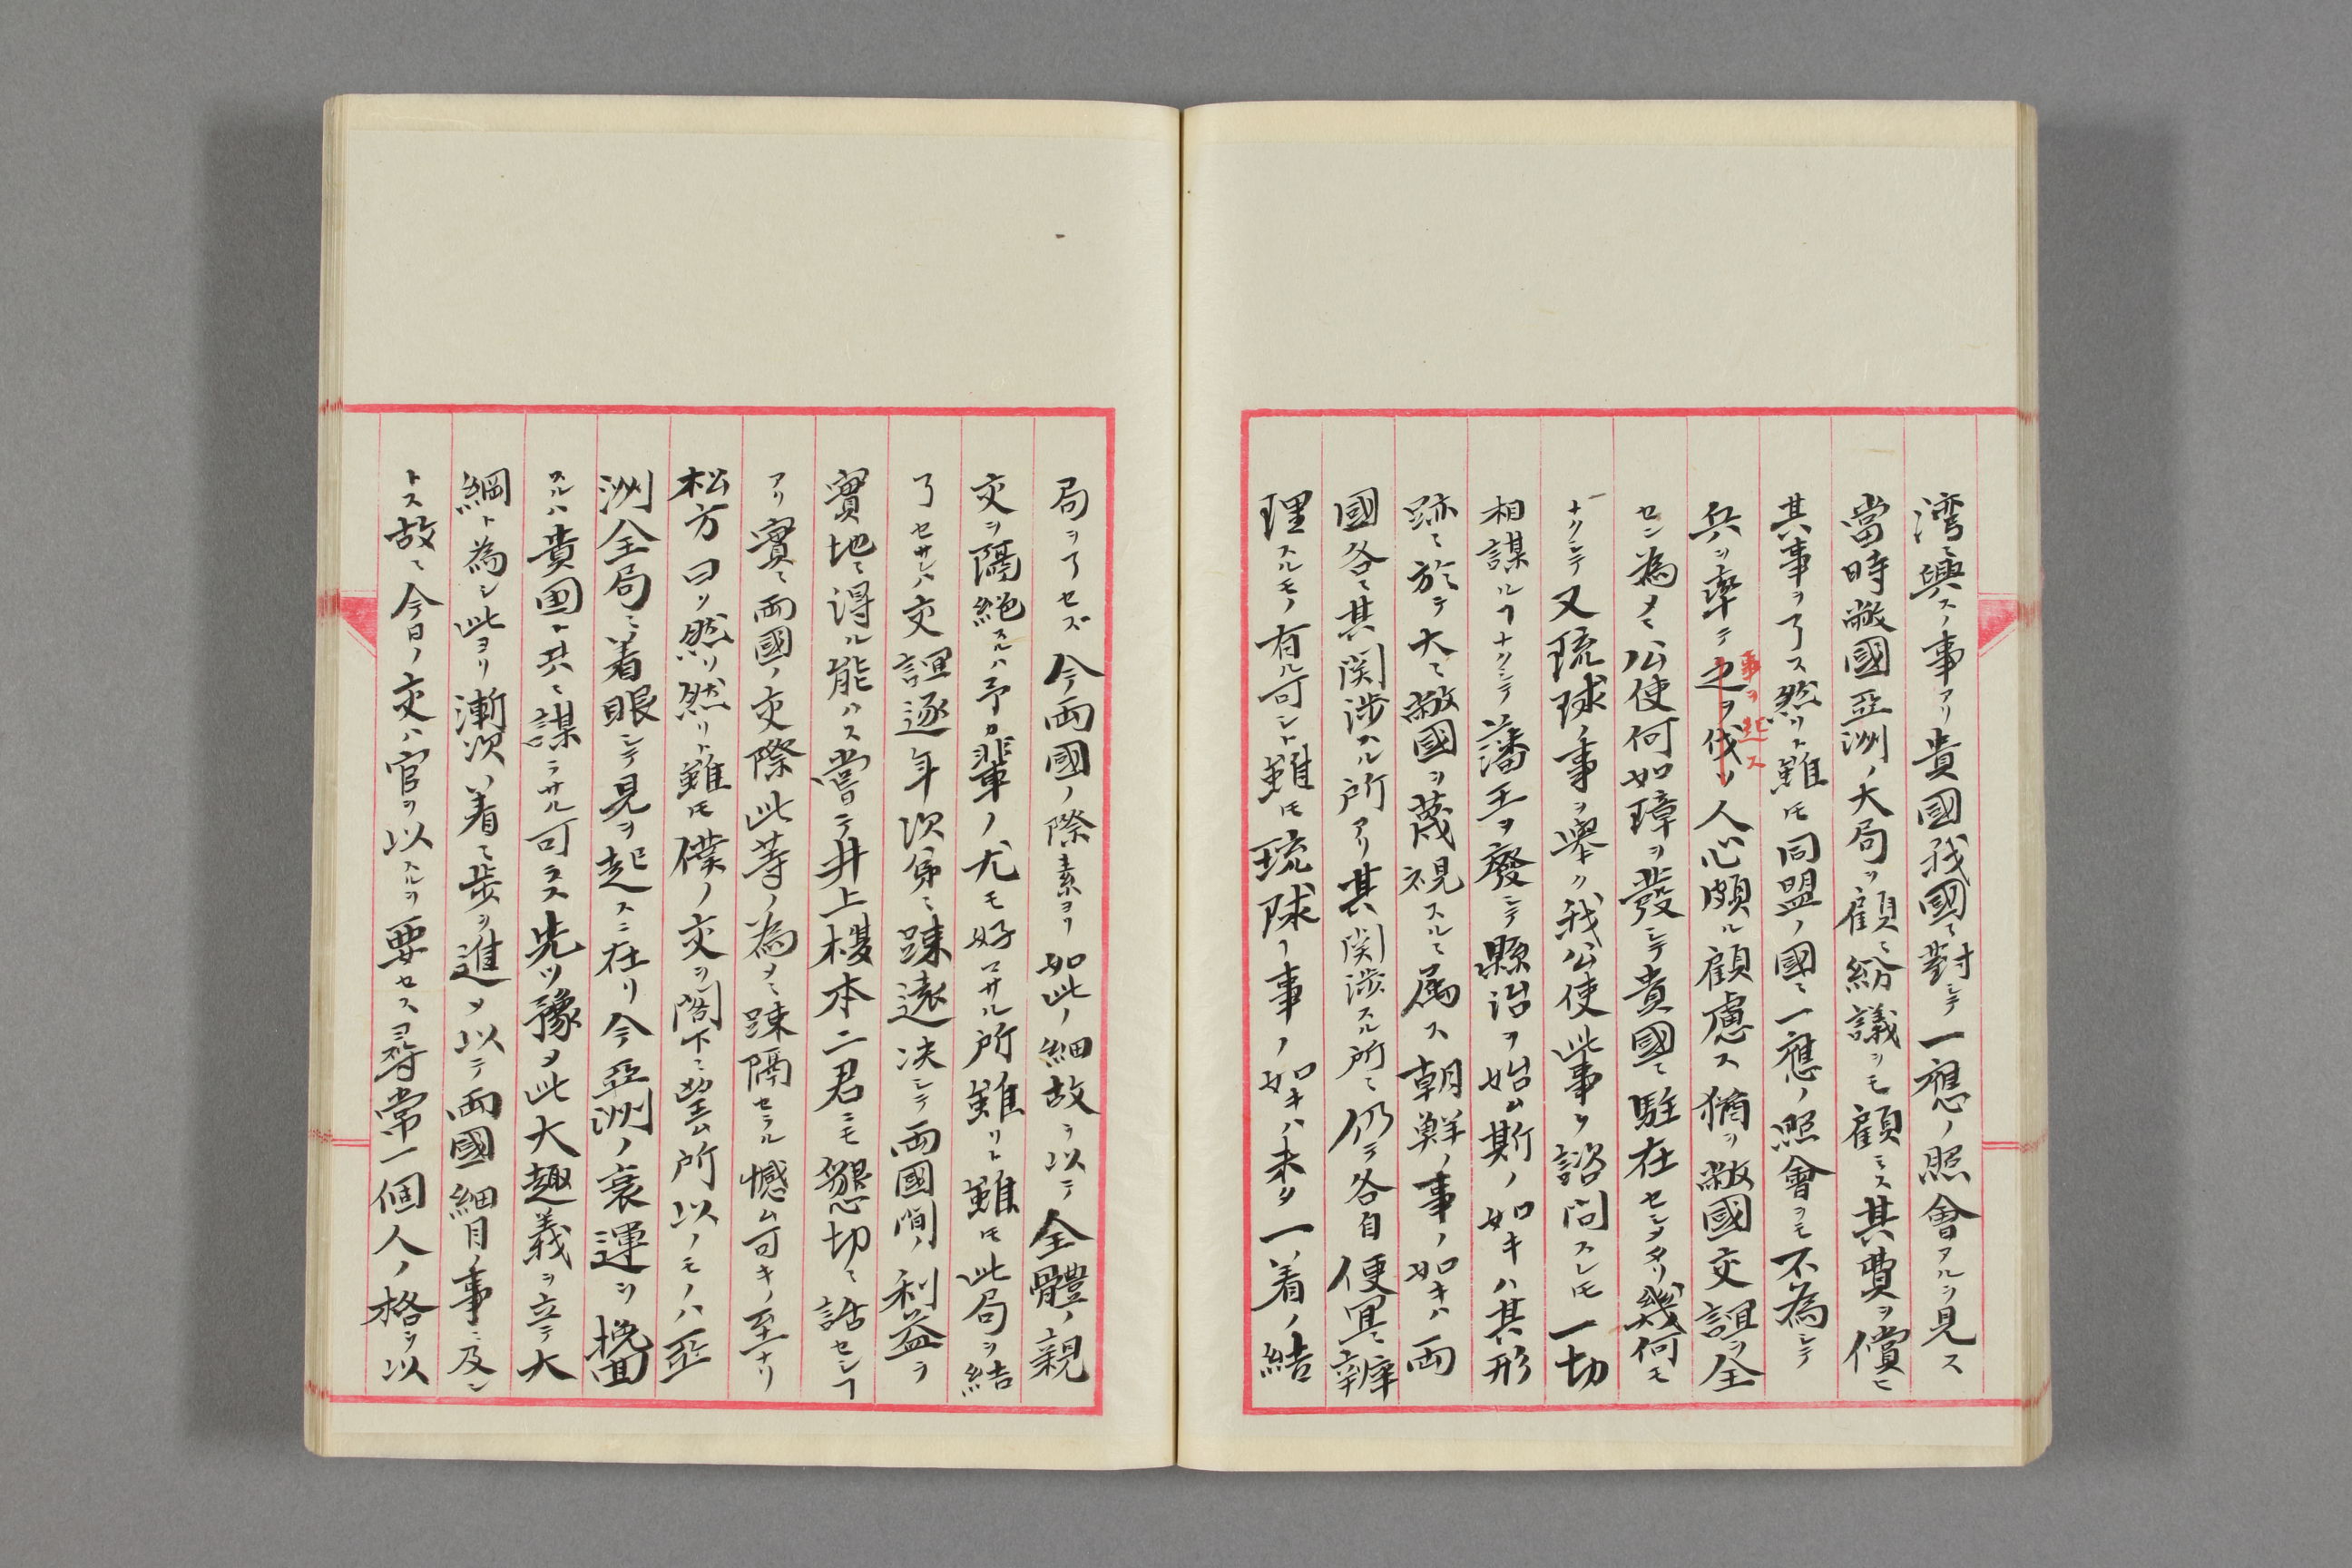 湾ニ興スノ事アリ貴國我國ニ對シテ一應ノ照會アルヲ見ス
當時敝國亞洲ノ大局ヲ顧ミ紛議ヲモ顧ミス其費ヲ償ヒ
其事ヲ了ス然リト雖ㇳモ同盟ノ國ニ一應ノ照會ヲモ不為シテ
兵ヲ率テ之ヲ伐ツ人心頗ル顧慮ス猶ヲ敝國交誼ヲ全
事ヲ起ス
セン為メニ公使何如璋ヲ發シテ貴國ニ駐在セシメタリ幾何モ
ナクシテ又琉球ノ事ヲ擧ク我公使此事ヲ諮問スレㇳモ一切
相謀ルヿナクシテ藩王ヲ廢シテ縣治ヲ始ム斯ノ如キハ其形
跡ニ於テ大ニ敝國ヲ蔑視スルニ属ス朝鮮ノ事ノ如キハ両
國各ニ其関渉スル所アリ其関渉スル所ニ仍テ各自便宜ニ辦
理スルモノ有ル可シト雖ㇳモ琉球ノ事ノ如キハ未タ一着ノ結
局ヲ了セズ今両國ノ際素ヨリ如此ノ細故ヲ以テ全體ノ親
交ヲ隔絶スルハ予カ輩ノ尤モ好マサル所雖リト雖ㇳモ此局ヲ結
了セサレハ交誼逐年次第ニ踈遠决シテ両國間ノ利益ヲ
實地ニ得ル能ハス嘗テ井上榎本二君ニモ懇切ニ話セシヿ
アリ實ニ両國ノ交際此等ノ為メニ踈隔セラル憾ム可キノ至ナリ
松方曰ク然リ然リト雖ㇳモ僕ノ交ヲ閣下ニ望ム所以ノモノハ亞
洲全局ニ着眼シテ見ヲ起スニ在リ今亞洲ノ衰運ヲ挽回
スルハ貴国ト共ニ謀ラサル可ラス先ツ豫メ此大趣義ヲ立テ大
綱ト為シ此ヨリ漸次ハ着ニ歩ヲ進メ以テ両國細目ノ事ニ及ン
トス故ニ今日ノ交ハ官ヲ以スルヲ要セス尋常一個人ノ格ヲ以